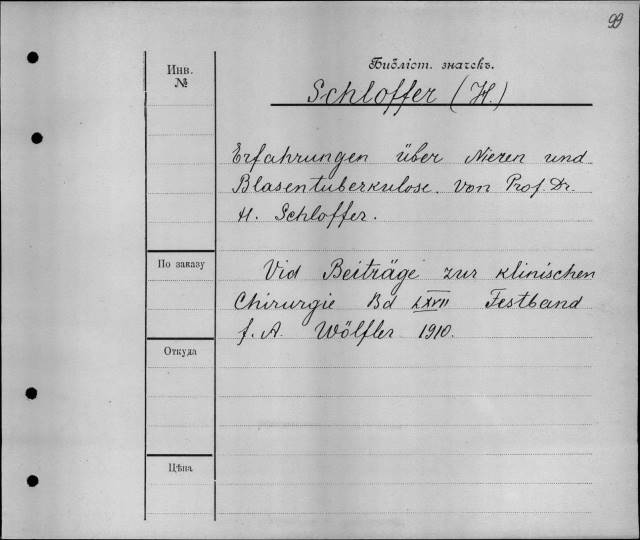 99
Библіот. значекъ.
Schloffer (H.)
Инв.
№
Erfahrungen über Nieren und
Blasentuberkulose. Von Prof. Dr.
H. Schloffer.
По заказу
Vid Beiträge zur klinischen
Chirurgie Bd LXVII Festband
f. A. Wölfler 1910.
Откуда
Цѣна